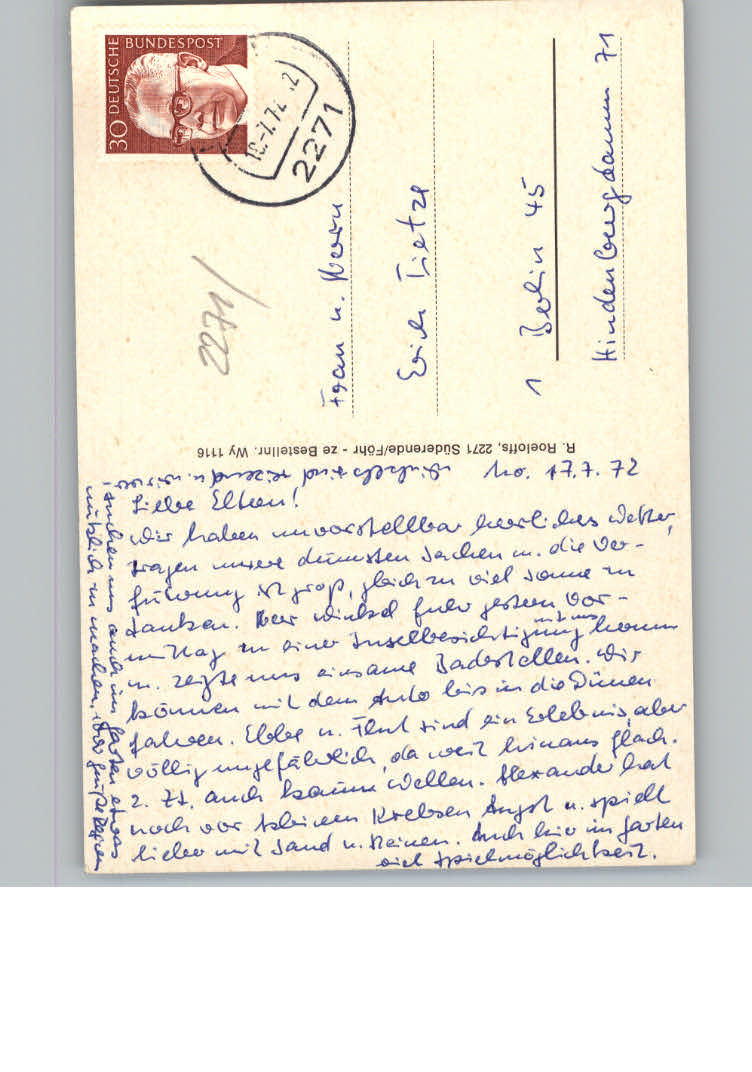 30 DEUTSCHE BUNDESPOST
18.-7.72
2271
2271/
Frau u. Herrn
Erich Tietze
1 Berlin 45
Hindenburgdamm 71
R. Roeloffs, 2271 Süderende/Föhr - ze Bestellnr. Wy 1116
Mo. 17.7.72
Liebe Eltern!
Wir haben unvorstellbar herrliches Wetter,
tragen unsere dünnsten Sachen u. die Ver-
führung ist groß, gleich zu viel Sonne zu
tanken. Herr Winkel fuhr gestern Vor-
mittag zu einer Inselbesichtigung mit uns
u. zeigte uns einsame Badestellen. Wir
können mit dem Auto bis in die Dünen
fahren. Ebbe u. Flut sind ein Erlebnis, aber
völlig ungefährlich, da weit hinaus flach.
z. Zt. auch kaum Wellen. Alexander hat
noch vor kleinen Krebsen Angst u. spielt
lieber mit Sand u. Steinen. Auch hier im Garten
viel Spielmöglichkeit.
Winkels sind reizend u. wir ver-
suchen uns auch im Garten etwas
nützlich zu machen.